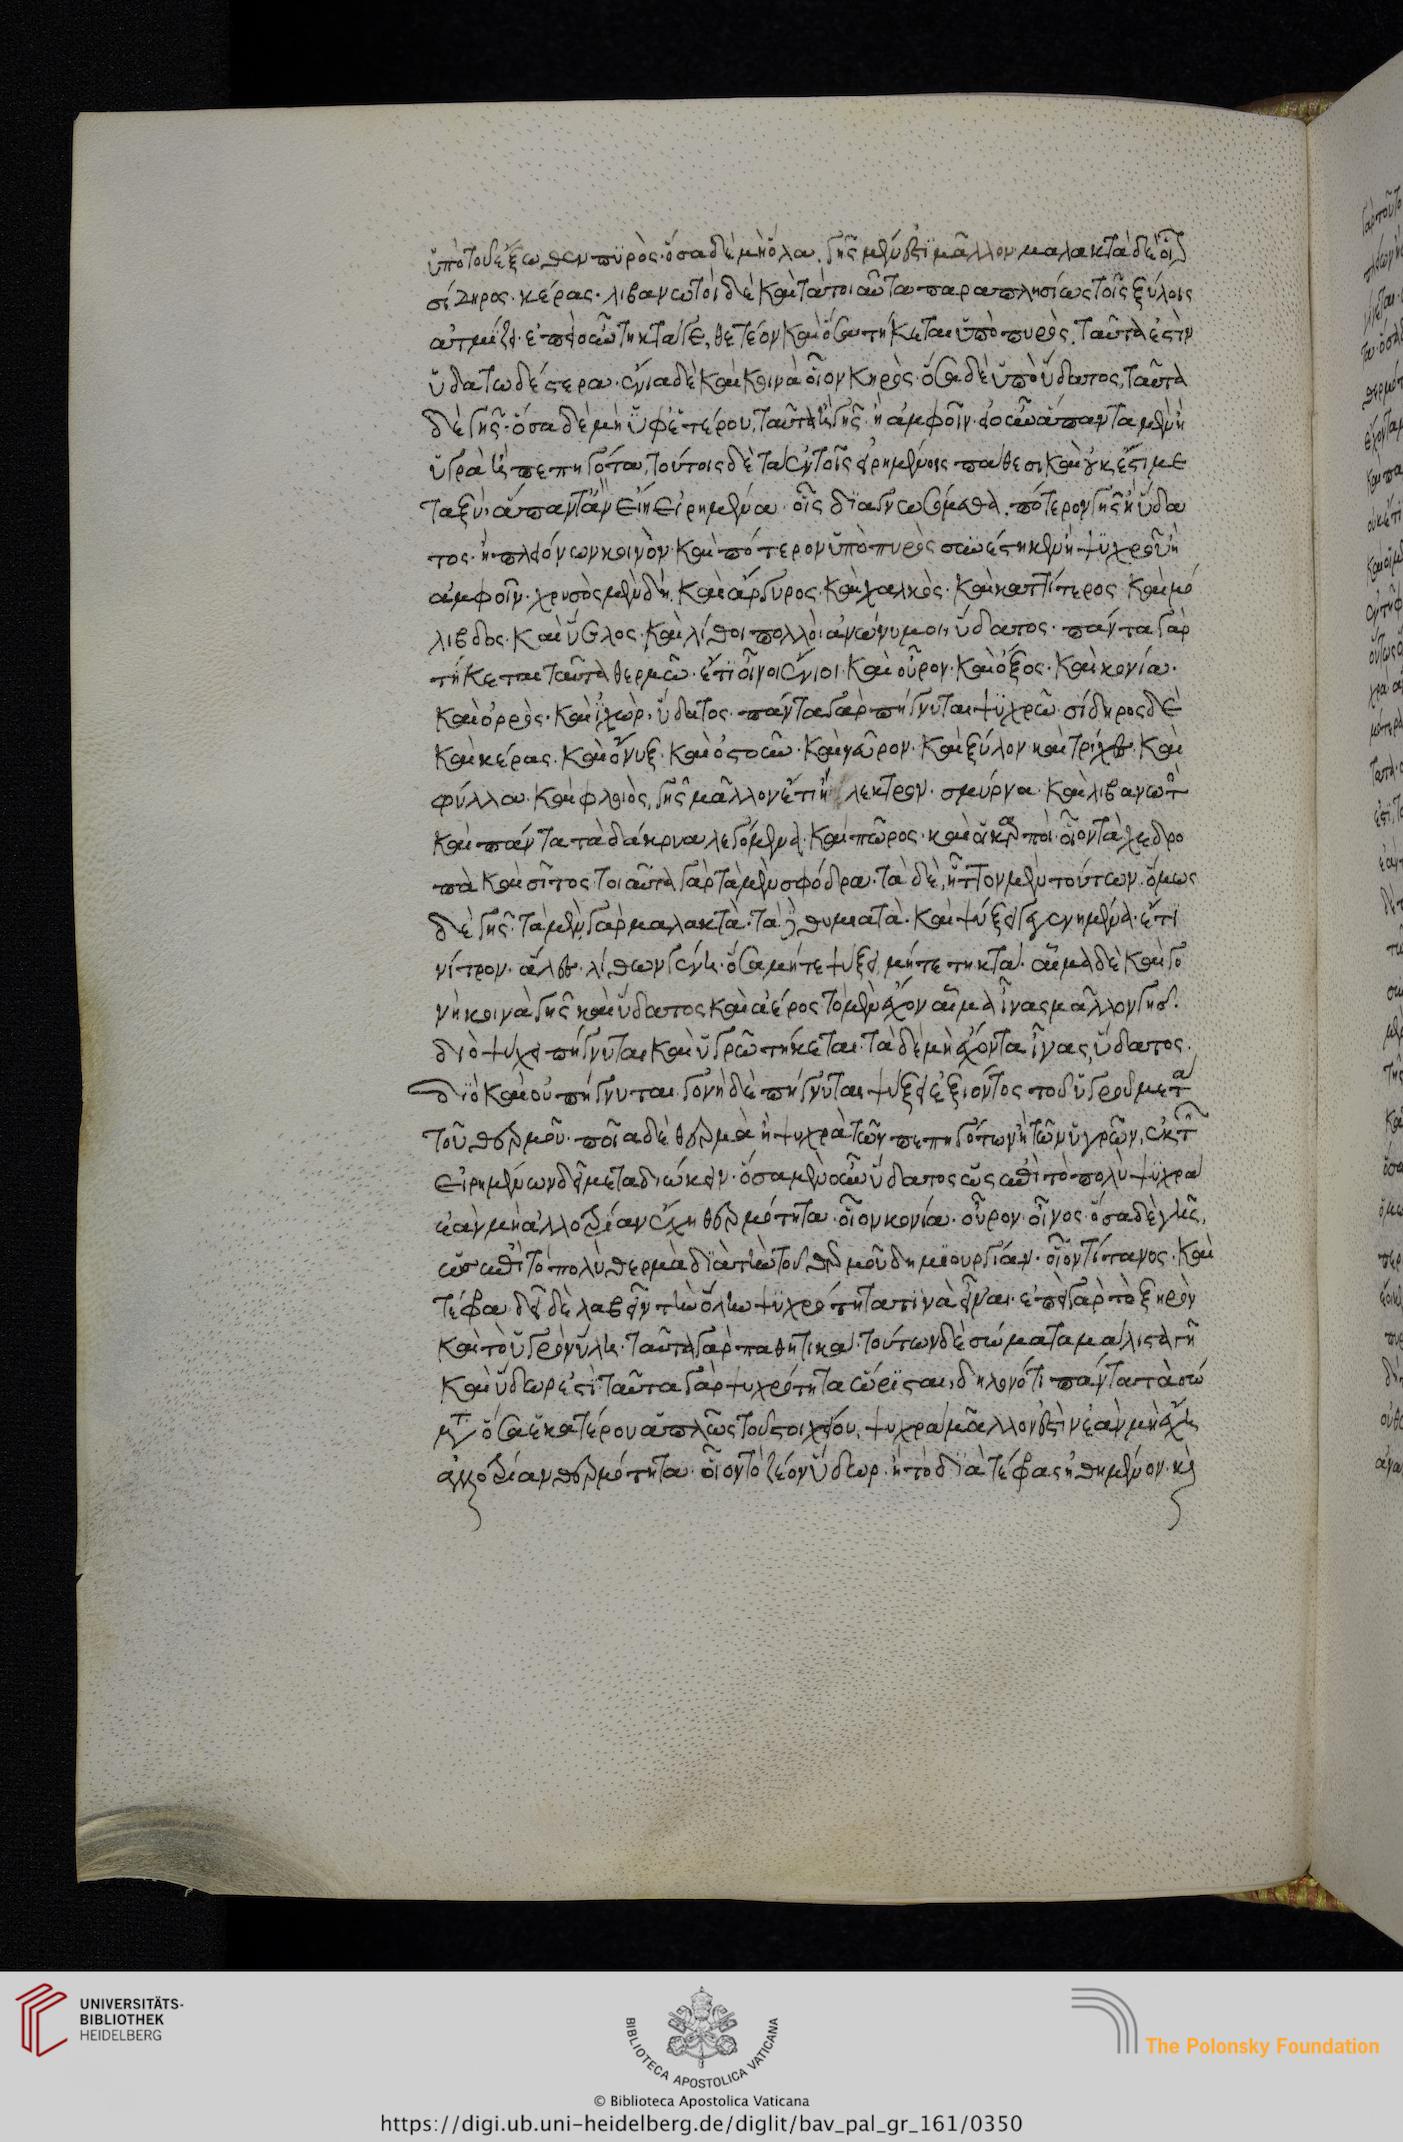 ὑπὸ τοῦ ἔξωθεν πυρὸς· ὅσα δὲ μὴ ὅλα, γῆς μέν ἐστι μᾶλλον· μαλακτὰ δὲ οἷον
σίδηρος· κέρας· λιβανωτοὶ δὲ καὶ τὰ τοιαῦτα παραπλησίως τοῖς ξύλοις
ἀτμίζει· ἐπεὶ οὖν τηκτά γε, θετέον καὶ ὅσα τήκεται ὑπὸ πυρὸς, ταῦτα ἐστὶν
ὑδατωδέστερα· ἔνια δὲ καὶ κοινὰ οἷον κηρὸς· ὅσα δὲ ὑπὸ ὕδατος, ταῦτα
δὲ γῆς· ὅσα δὲ μὴ ὑφ' ἑτέρου, ταῦτα ἢ γῆς· ἢ ἀμφοῖν· εἰ οὖν ἅπαντα μὲν ἢ
ὑγρὰ ἢ πεπηγότα, τούτοις δὲ τὰ ἐν τοῖς εἰρημένοις πάθεσι καὶ οὐκ ἔστι με
ταξὺ· ἅπαντ' ἂν εἴη εἰρημένα· οἷς διαγνωσόμεθα, πότερον γῆς ἢ ὕδα
τος· ἢ πλειόνων κοινὸν· καὶ πότερον ὑπὸ πυρὸς συνέστηκεν ἢ ψυχροῦ ἢ
ἀμφοῖν· χρυσὸς μὲν δὴ, καὶ ἄργυρος· καὶ χαλκὸς· καὶ καττίτερος· καὶ μό
λιβδος· καὶ ὕελος· καὶ λίθοι πολλοὶ ἀνώνυμοι, ὕδατος· πάντα γὰρ
τήκεται ταῦτα θερμῶ· ἔτι οἶνοι ἔνιοι· καὶ οὖρον· καὶ ὄξος· καὶ κονία·
καὶ ὀρρὸς· καὶ ἰχὼρ· ὕδατος· πάντα γὰρ πήγνυται ψυχρῶ· σίδηρος δὲ
καὶ κέρας· καὶ ὄνυξ· καὶ ὀστοῦν· καὶ νεῦρον· καὶ ξύλον· καὶ τρίχες· καὶ
φύλλα· καὶ φλοιὸς, γῆς μᾶλλον ἔτι ἤλεκτρον· σμύρνα· καὶ λιβανωτὸς
καὶ πάντα τὰ δάκρυα λεγόμενα· καὶ πῶρος· καὶ οἱ καρποὶ· οἷον τὰ χεδρο
πὰ καὶ σῖτος· τοιαῦτα γὰρ τὰ μὲν σφόδρα· τὰ δὲ, ἧττον μὲν τούτων· ὅμως
δὲ γῆς· τὰ μὲν γὰρ μαλακτὰ· τὰ δὲ θυμιατὰ· καὶ ψύξει γεγενημένα· ἔτι
νίτρον· ἅλες· λίθων γένη· ὅσα μήτε ψύξει, μήτε τηκτὰ· αἷμα δὲ καὶ γο
νὴ κοινὰ γῆς καὶ ὕδατος καὶ ἀέρος· τὸ μὲν ἔχον αἷμα ἶνας μᾶλλον γῆς·
διὸ ψύχει πήγνυται καὶ ὑγρῶ τήκεται· τὰ δὲ μὴ ἔχοντα ἶνας, ὕδατος·
διὸ καὶ οὐ πήγνυται· γονὴ δὲ πήγνυται ψύξει ἐξιόντος τοῦ ὑγροῦ μετὰ
τοῦ θερμοῦ· ποῖα δὲ θερμὰ ἢ ψυχρὰ τῶν πεπηγότων ἢ τῶν ὑγρῶν, ἐκ τῶν
εἰρημένων δεῖ μεταδιώκειν· ὅσα μὲν οὖν ὕδατος ὡς ἐπὶ τὸ πολὺ ψυχρὰ
ἐὰν μὴ ἀλλοτρίαν ἔχη θερμότητα· οἷον κονία· οὖρον· οἶνος· ὅσα δὲ γῆς,
ὡς ἐπὶ τὸ πολὺ θερμὰ διὰ τὴν τοῦ θερμοῦ δημιουργίαν· οἷον τίτανος· καὶ
τέφρα· δεῖ δὲ λαβεῖν τὴν ὕλην ψυχρότητα τινὰ εἶναι· ἐπεὶ γὰρ τὸ ξηρὸν
καὶ τὸ ὑγρὸν ὕλη· ταῦτα γὰρ παθητικά· τούτων δὲ σώματα μάλιστα γῆ
καὶ ὕδωρ ἐστὶ· ταῦτα γὰρ ψυχρότητα ὥρισται, δηλονότι πάντα τὰ σώ
ματα ὅσα ἑκατέρου ἁπλῶς τοῦ στοιχείου, ψυχρὰ μᾶλλον ἐστὶν ἐὰν μὴ ἔχη
ἀλλοτρίαν θερμότητα· οἷον τὸ ζέον ὕδωρ· ἢ τὸ διὰ τέφρας ἠθημένον· καὶ
UNIVERSITÄTS-
BIBLIOTHEK
HEIDELBERG
BIBLIOTECA APOSTOLICA VATICANA
The Polonsky Foundation
© Biblioteca Apostolica Vaticana
https://digi.ub.uni-heidelberg.de/diglit/bav_pal_gr_161/0350